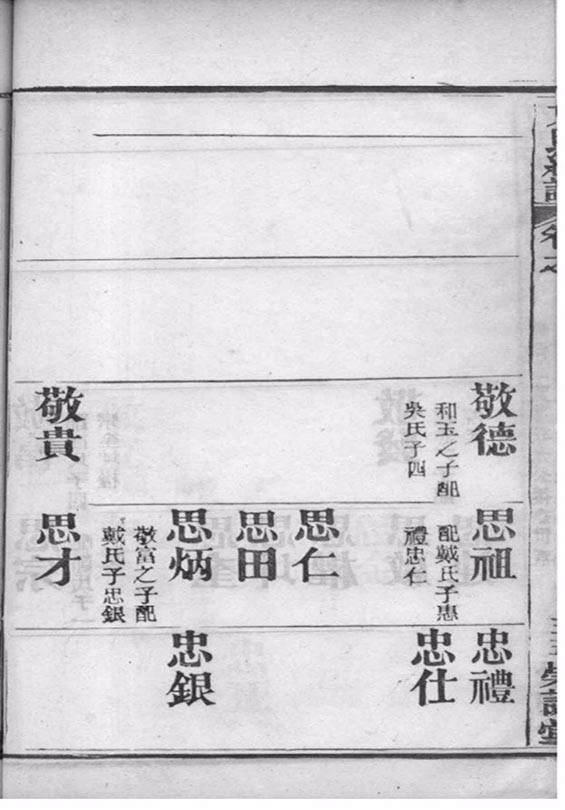 敬德
和玉之子配
吳氏子四
敬貴
思祖
配戴氏子惠
禮忠仁
思仁
思田
思炳
敬富之子配
戴氏子忠銀
思才
忠禮
忠仕
忠銀